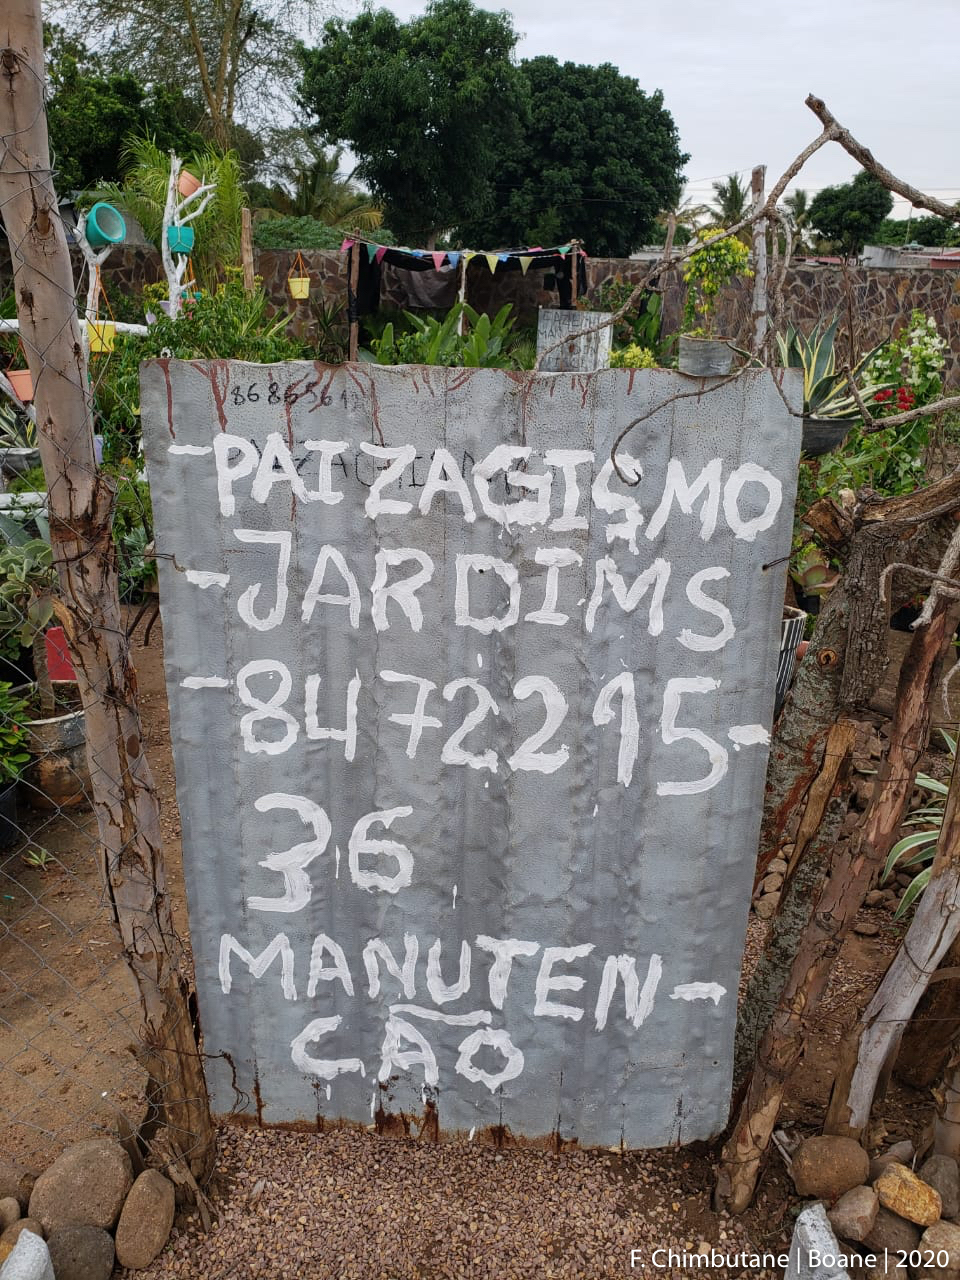 -PAIZAGISMO
-JARDIMS
-8472215-
36
MANUTEN-
ÇÃO
F. Chimbutane | Boane | 2020